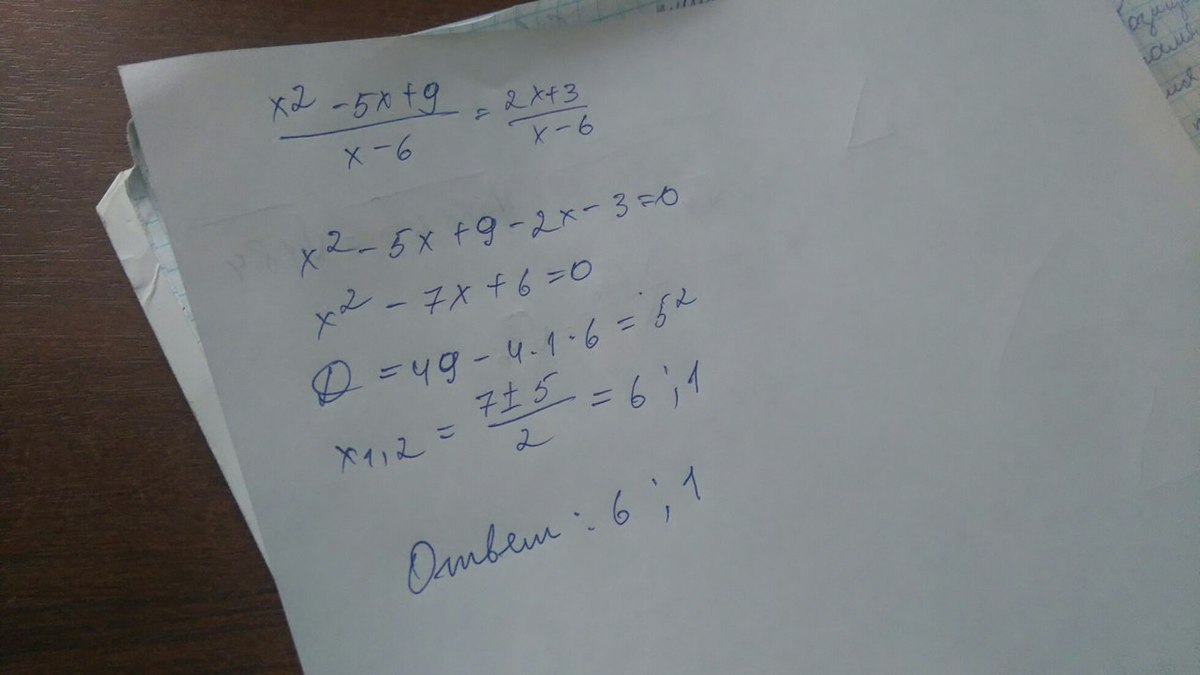 x² - 5x + 9 / x - 6 = 2x + 3 / x - 6
x² - 5x + 9 - 2x - 3 = 0
x² - 7x + 6 = 0
D = 49 - 4 · 1 · 6 = 5²
x1,2 = 7 ± 5 / 2 = 6 ; 1
Ответ: 6 ; 1